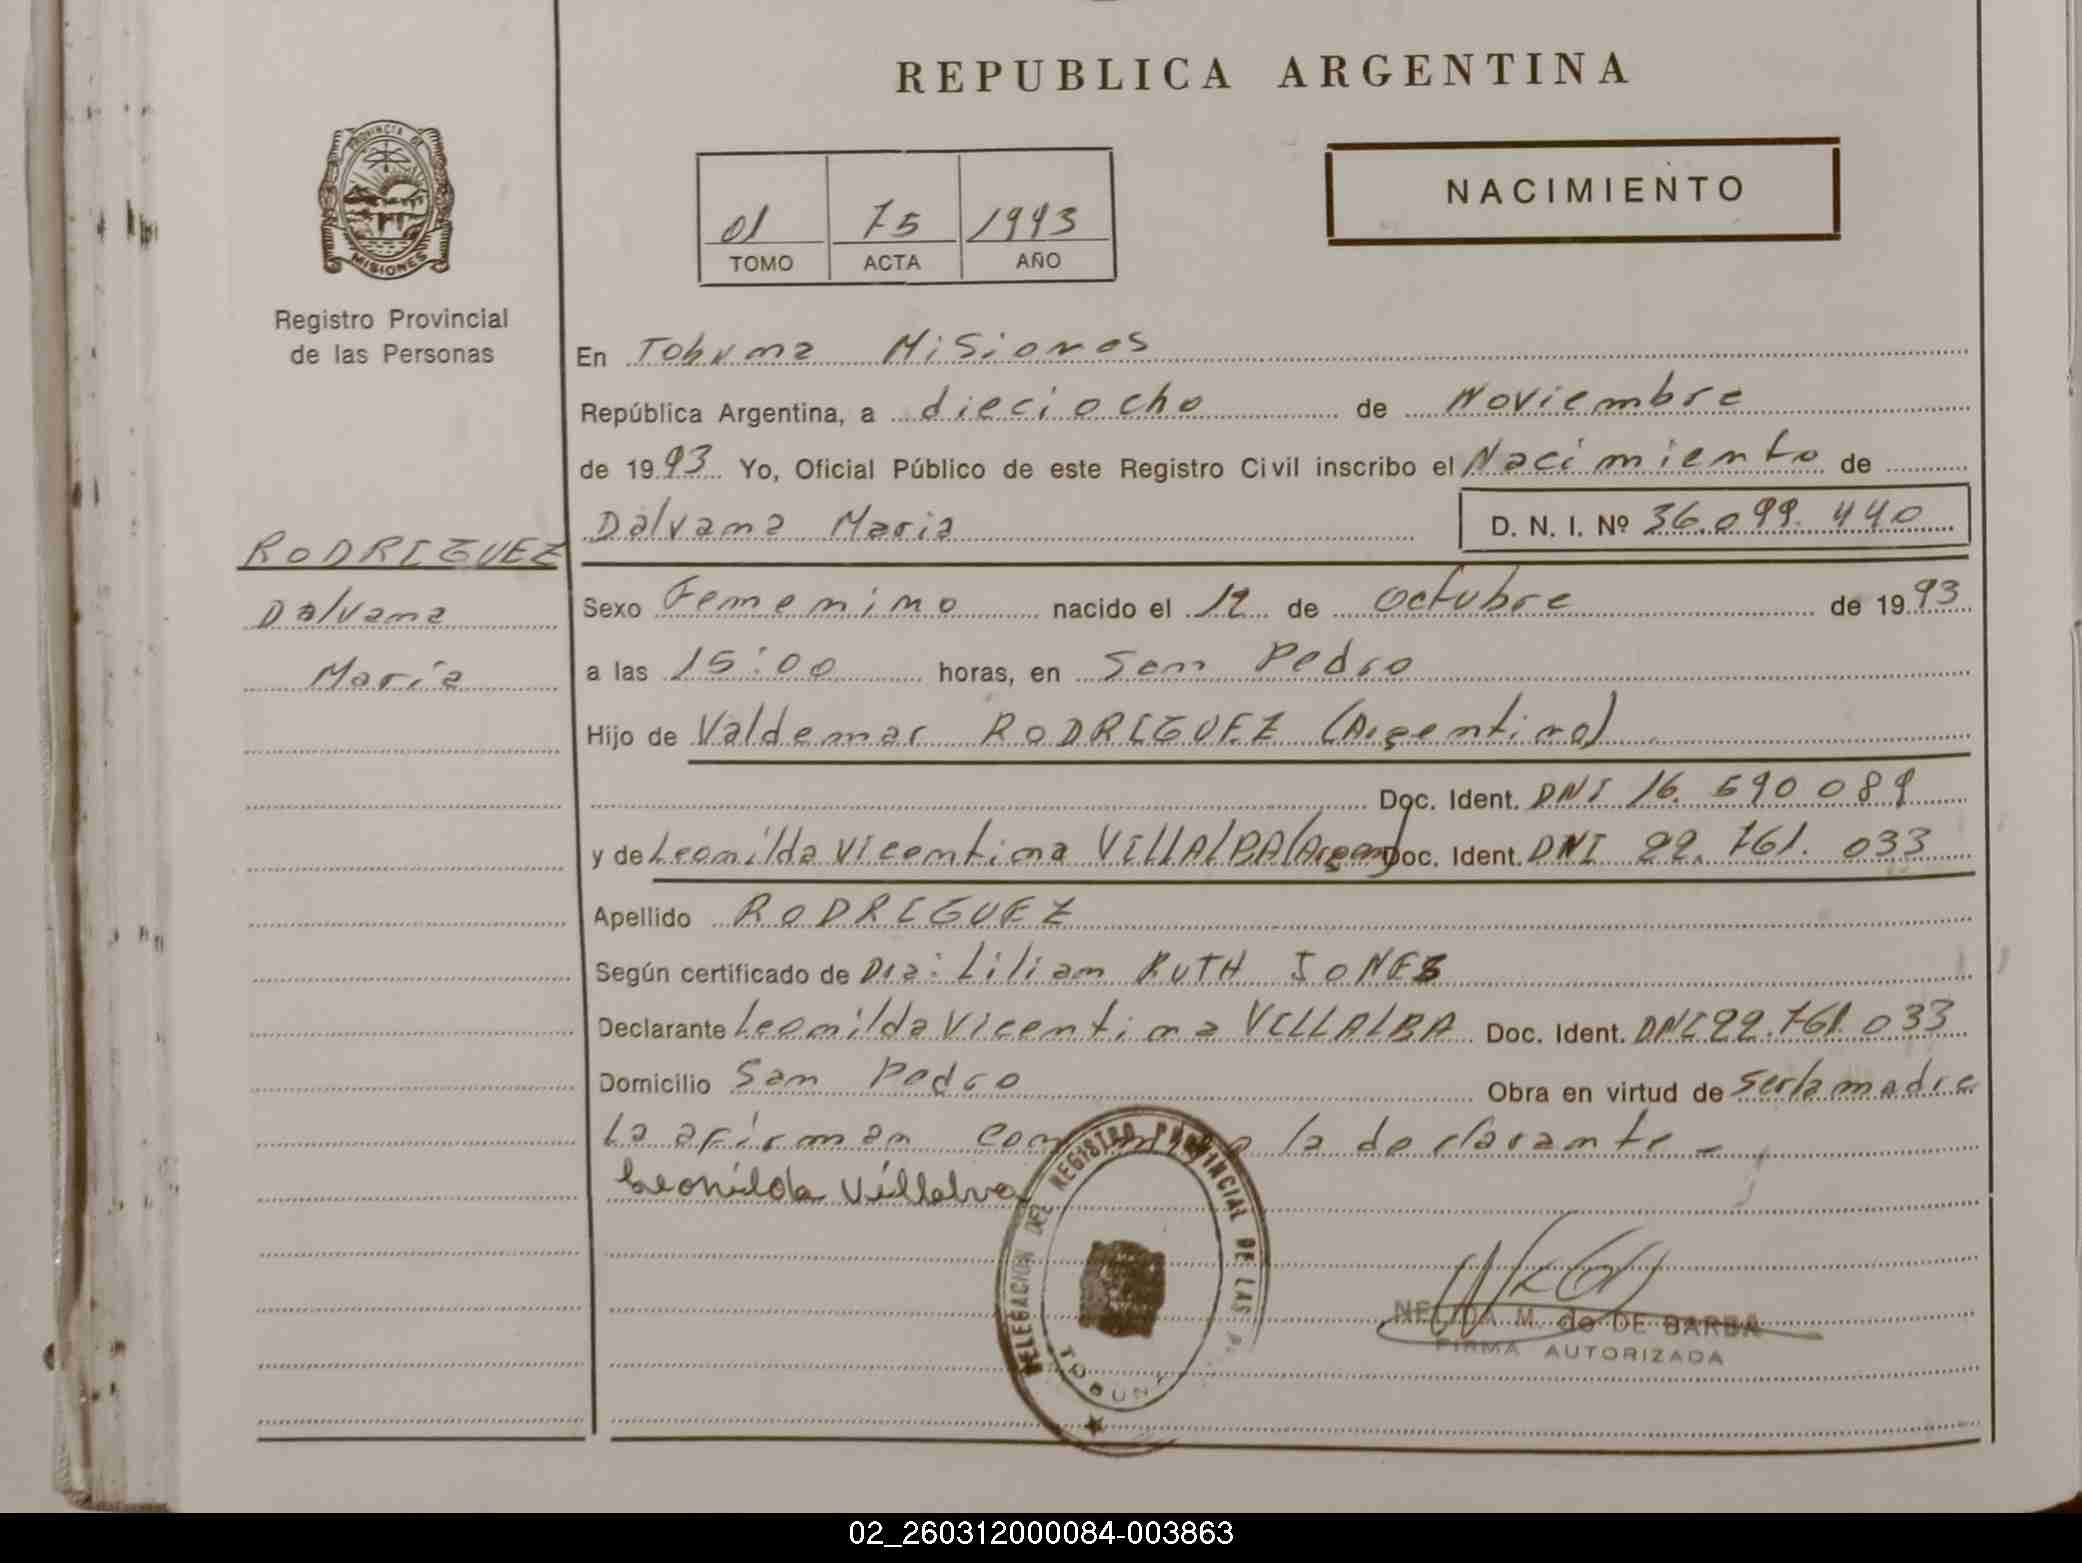 REPUBLICA ARGENTINA
PROVINCIA DE
MISIONES
Registro Provincial
de las Personas
01 75 1993
TOMO ACTA AÑO
NACIMIENTO
En Tobuna Misiones
República Argentina, a dieciocho de Noviembre
de 1993 Yo, Oficial Público de este Registro Civil inscribo el Nacimiento de
Dalvana Maria D. N. I. Nº 36.099.440
RODRIGUEZ
Dalvana
María
Sexo Femenino nacido el 12 de octubre de 1993
a las 15:00 horas, en San Pedro
Hijo de Valdemar RODRIGUEZ (Argentino)
Doc. Ident. DNI 16.690089
y de Leonilda Vicentina VILLALBA (Argen) Doc. Ident. DNI 22.761.033
Apellido RODRIGUEZ
Según certificado de Dra: Lilian RUTH JONES
Declarante Leonilda Vicentina VILLALBA Doc. Ident. DNI 22.761.033
Domicilio San Pedro Obra en virtud de ser la madre
La afirman conmigo la declarante –
Leonilda Villalva
DELEGACION DEL REGISTRO PROVINCIAL DE LAS
TOBUNA
NELIDA M. de DE BARBA
FIRMA AUTORIZADA
02_260312000084-003863